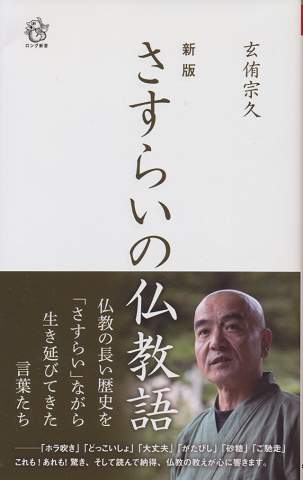 ロング新書
玄侑宗久
新版
さすらいの仏教語
仏教の長い歴史を
「さすらい」ながら
生き延びてきた
言葉たち
――「ホラ吹き」「どっこいしょ」「大丈夫」「がたぴし」「砂糖」「ご馳走」
これも!あれも!驚き、そして読んで納得、仏教の教えが心に響きます。